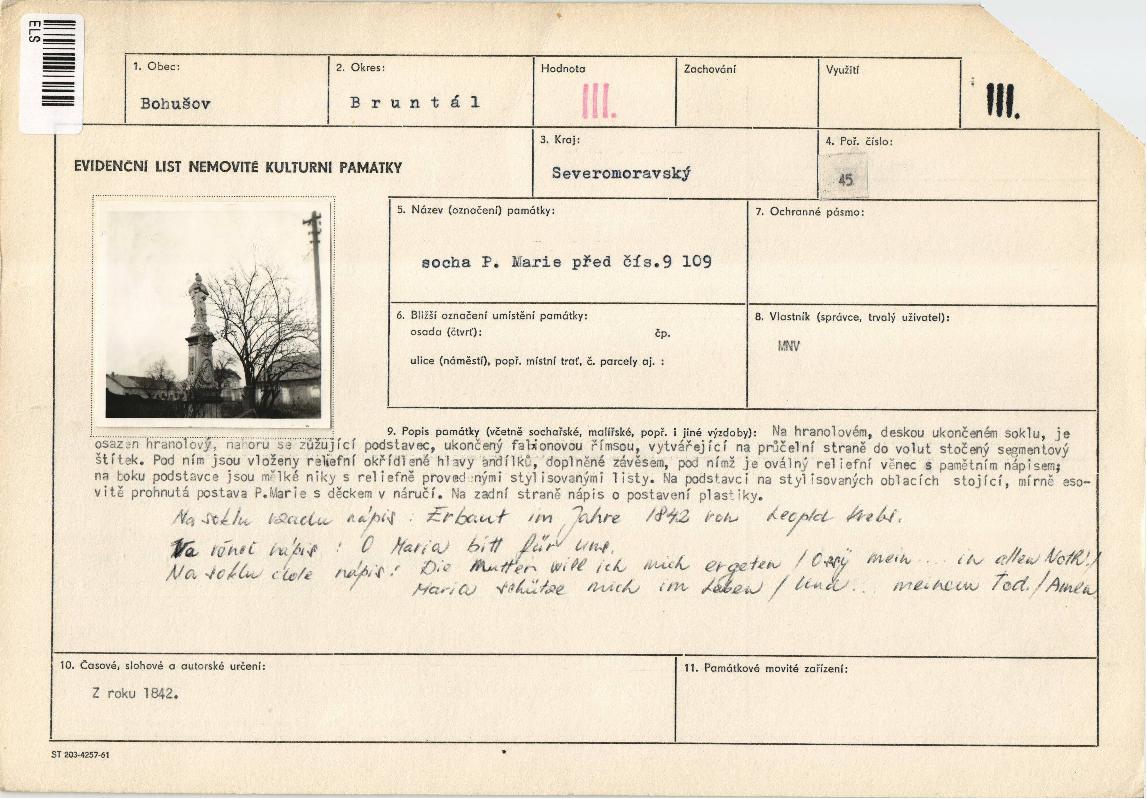 ELS
1. Obec:
Bohušov
2. Okres:
Bruntál
Hodnota
III.
Zachování
Využití
III.
EVIDENČNÍ LIST NEMOVITÉ KULTURNÍ PAMÁTKY
3. Kraj:
Severomoravský
4. Poř. číslo:
45
5. Název (označení) památky:
socha P. Marie před čís.9 109
7. Ochranné pásmo:
6. Bližší označení umístění památky:
osada (čtvrť): čp.
ulice (náměstí), popř. místní trať, č. parcely aj. :
8. Vlastník (správce, trvalý uživatel):
MNV
9. Popis památky (včetně sochařské, malířské, popř. i jiné výzdoby): Na hranolovém, deskou ukončeném soklu, je
osazen hranolový, nahoru se zůžující podstavec, ukončený fabionovou římsou, vytvářející na průčelní straně do volut stočený segmentový
štítek. Pod ním jsou vloženy reliéfní okřídlené hlavy andílků, doplněné závěsem, pod nímž je oválný reliefní věnec s pamětním nápisem;
na boku podstavce jsou mělké niky s reliefně provedenými stylisovanými listy. Na podstavci na stylisovaných oblacích stojící, mírně eso-
vitě prohnutá postava P.Marie s děckem v náručí. Na zadní straně nápis o postavení plastiky.
Na soklu vzadu nápis: Erbaut im Jahre 1842 von Leopld
Na věnci nápis: O Maria bitt für uns.
Na soklu čele nápis: Die Mutter will ich mich ergeten / mein ... in allen Noth!/
Maria schütze mich im Leben / Und... meinem Tod./Amen
10. Časové, slohové a autorské určení:
Z roku 1842.
11. Památkové movité zařízení:
ST 203-4257-61